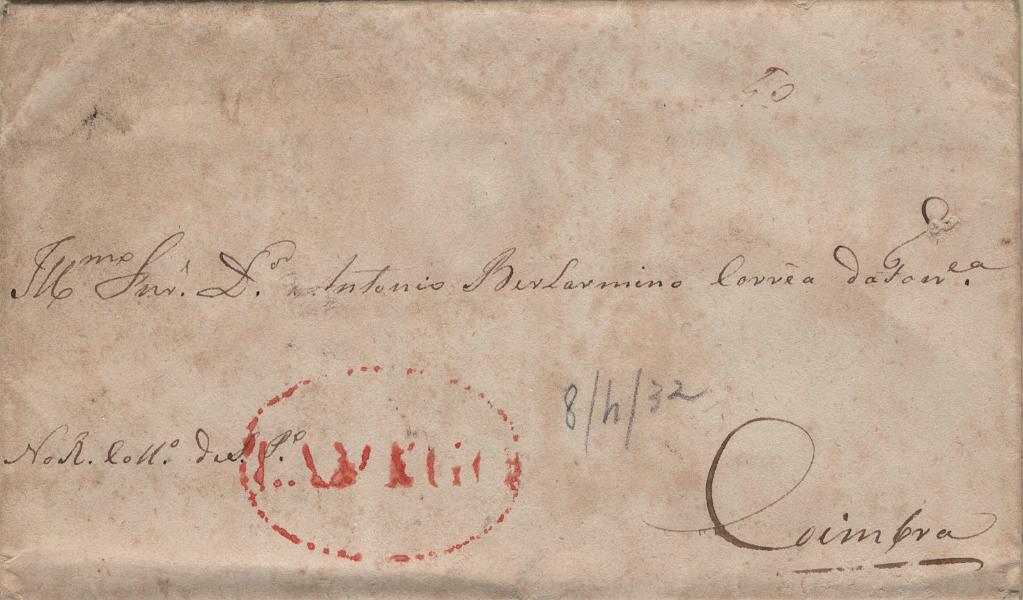 40
Illmo Snr. Dor Antonio Berlarmino Corrêa da Fonca.
8/4/32
No R. Collo. de S. Po.
Coimbra